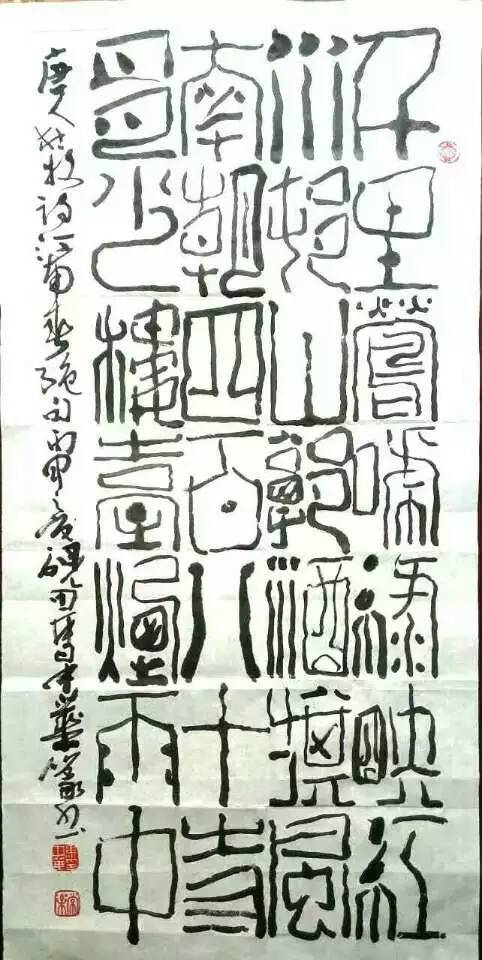 千里鶯啼綠映紅
水邨山郭酒旗風
南朝四百八十寺
多少樓臺煙雨中
唐人杜牧詩江南春絕句丙申之